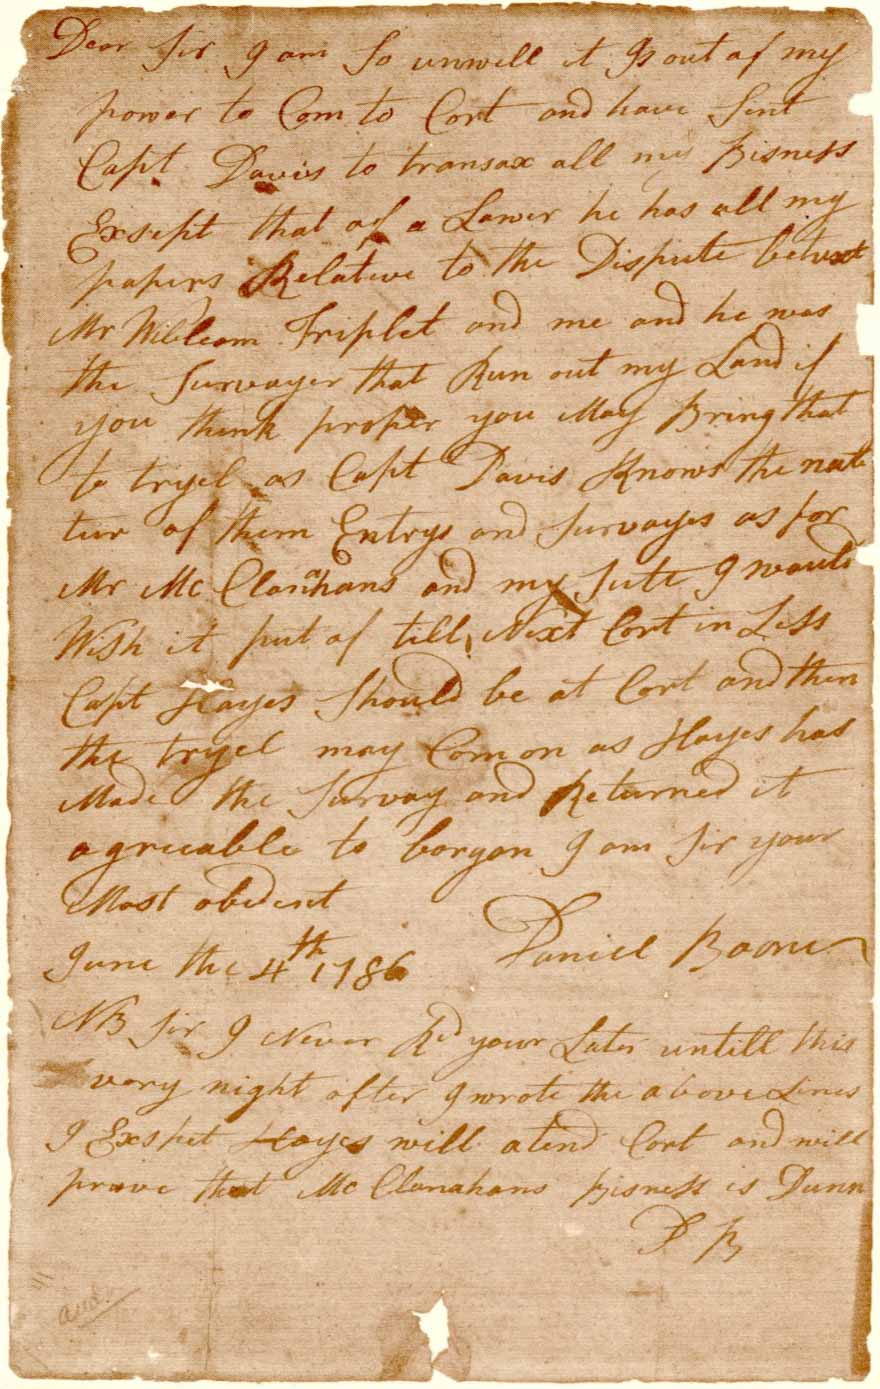 Dear Sir I am So unwell it Is out of my
power to Com to Cort and have Sent
Capt Davis to transax all my Bisness
Exsept that of a Lawer he has all my
papers Relative to the Dispute betwext
Mr William Triplet and me and he was
the Survayer that Run out my Land if
you think proper you May Bring that
to tryel as Capt Davis Knows the nate
tur of them Entrys and Survayes as for
Mr Mc Clanahans and my Sute I would
Wish it put of till Next Cort in Less
Capt Hayes Should be at Cort and then
the tryel may Com on as Hayes has
Made the Survay and Returned it
agreeable to bargan I am Sir your
Most obedient
Daniel Boone
June the 4th 1786
NB Sir I Never Rd your Later untill this
very night after I wrote the above Lines
I Exspet Hayes will atend Cort and will
prove that Mc Clanahans Bisness is Dunn
D B